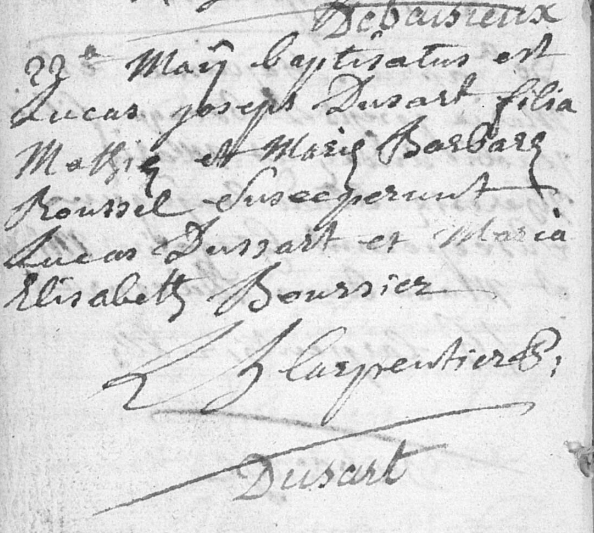 Debaisieux
22ª Maÿ baptisatus est
Lucas joseph Dusart filia
Mathię et Marię Barbarę
Roussel Susceperunt
Lucas Dussart et Maria
Elisabeth Boursier
Carpentier P:
Dusart